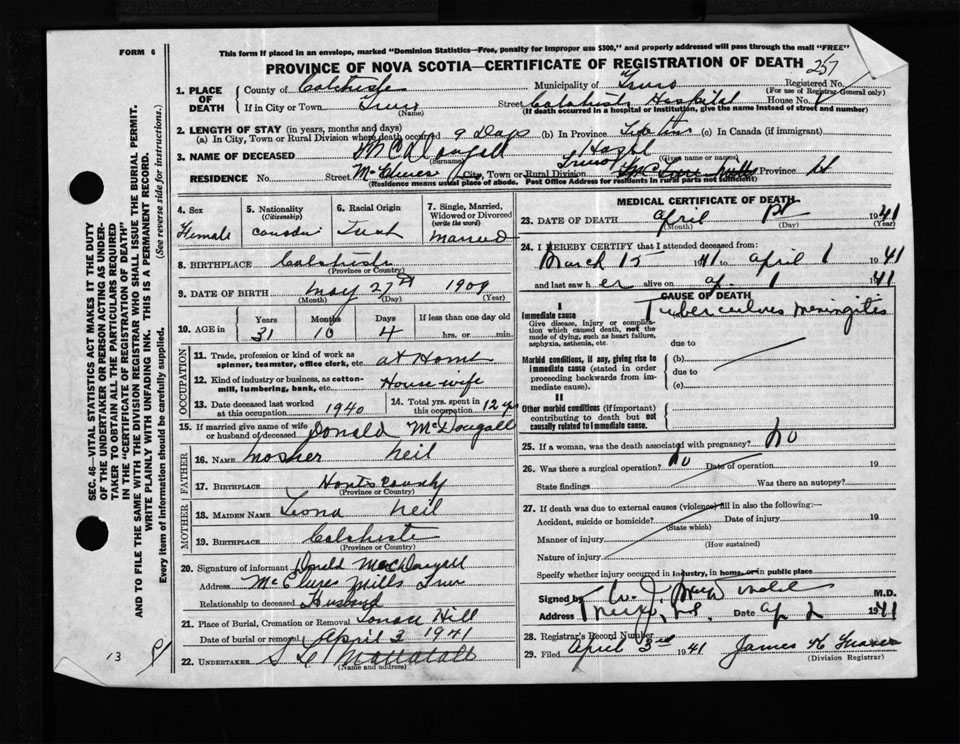 FORM 6
This form if placed in an envelope, marked "Dominion Statistics—Free, penalty for improper use $300," and properly addressed will pass through the mail "FREE"
PROVINCE OF NOVA SCOTIA—CERTIFICATE OF REGISTRATION OF DEATH
257
SEC. 46—VITAL STATISTICS ACT MAKES IT THE DUTY
OF THE UNDERTAKER OR PERSON ACTING AS UNDER-
TAKER TO OBTAIN ALL THE PARTICULARS REQUIRED
IN THE "CERTIFICATE OF REGISTRATION OF DEATH"
AND TO FILE THE SAME WITH THE DIVISION REGISTRAR WHO SHALL ISSUE THE BURIAL PERMIT.
WRITE PLAINLY WITH UNFADING INK. THIS IS A PERMANENT RECORD.
Every item of information should be carefully supplied. (See reverse side for instructions.)
1. PLACE OF DEATH
County of Colchester Municipality of Truro Registered No.
(For use of Registrar-General only)
If in City or Town Truro Street Colchester Hospital House No.
(Name) (If death occurred in a hospital or institution, give the name instead of street and number)
2. LENGTH OF STAY (in years, months and days)
(a) In City, Town or Rural Division where death occurred 9 Days (b) In Province Life time (c) In Canada (if immigrant)
3. NAME OF DECEASED McDougall Hazel
(Surname) (Given name or names)
RESIDENCE No. Street McClures City, Town or Rural Division Truro Province NS
(Residence means usual place of abode. Post Office Address for residents in rural parts not sufficient)
4. Sex Female
5. Nationality (Citizenship)
6. Racial Origin
7. Single, Married, Widowed or Divorced (write the word) Married
8. BIRTHPLACE Colchester
(Province or Country)
9. DATE OF BIRTH May 27th 1909
(Month) (Day) (Year)
10. AGE in Years Months Days If less than one day old
31 10 4 hrs. or min.
OCCUPATION
11. Trade, profession or kind of work as spinner, teamster, office clerk, etc. at Home
12. Kind of industry or business, as cotton-mill, lumbering, bank, etc. House wife
13. Date deceased last worked at this occupation 1940 14. Total yrs. spent in this occupation 12 yrs
15. If married give name of wife or husband of deceased Donald McDougall
FATHER
16. NAME Mosher Neil
17. BIRTHPLACE Hants County
(Province or Country)
MOTHER
18. MAIDEN NAME Leona Neil
19. BIRTHPLACE Colchester
(Province or Country)
20. Signature of informant Donald MacDougall
Address McClures Mills Truro
Relationship to deceased Husband
21. Place of Burial, Cremation or Removal Hill
Date of burial or removal April 3 1941
22. UNDERTAKER
(Name and address)
13
MEDICAL CERTIFICATE OF DEATH
23. DATE OF DEATH April 1st 1941
(Month) (Day) (Year)
24. I HEREBY CERTIFY that I attended deceased from:
March 15 1941 to April 1 1941
and last saw her alive on Ap. 1 1941
CAUSE OF DEATH
I
Immediate cause Tuberculous meningites
Give disease, injury or complication which caused death, not the mode of dying, such as heart failure, asphyxia, asthenia, etc.
due to
Morbid conditions, if any, giving rise to immediate cause (stated in order proceeding backwards from immediate cause).
(b)
due to
(c)
II
Other morbid conditions (if important) contributing to death but not causally related to immediate cause.
25. If a woman, was the death associated with pregnancy? No
26. Was there a surgical operation? No Date of operation 19
State findings Was there an autopsy?
27. If death was due to external causes (violence) fill in also the following:—
Accident, suicide or homicide? Date of injury 19
(State which)
Manner of injury
(How sustained)
Nature of injury
Specify whether injury occurred in industry, in home, or in public place
Signed by M.D.
Address Truro, N.S. Date Ap 2 1941
28. Registrar's Record Number
29. Filed April 3rd 1941 James
(Division Registrar)